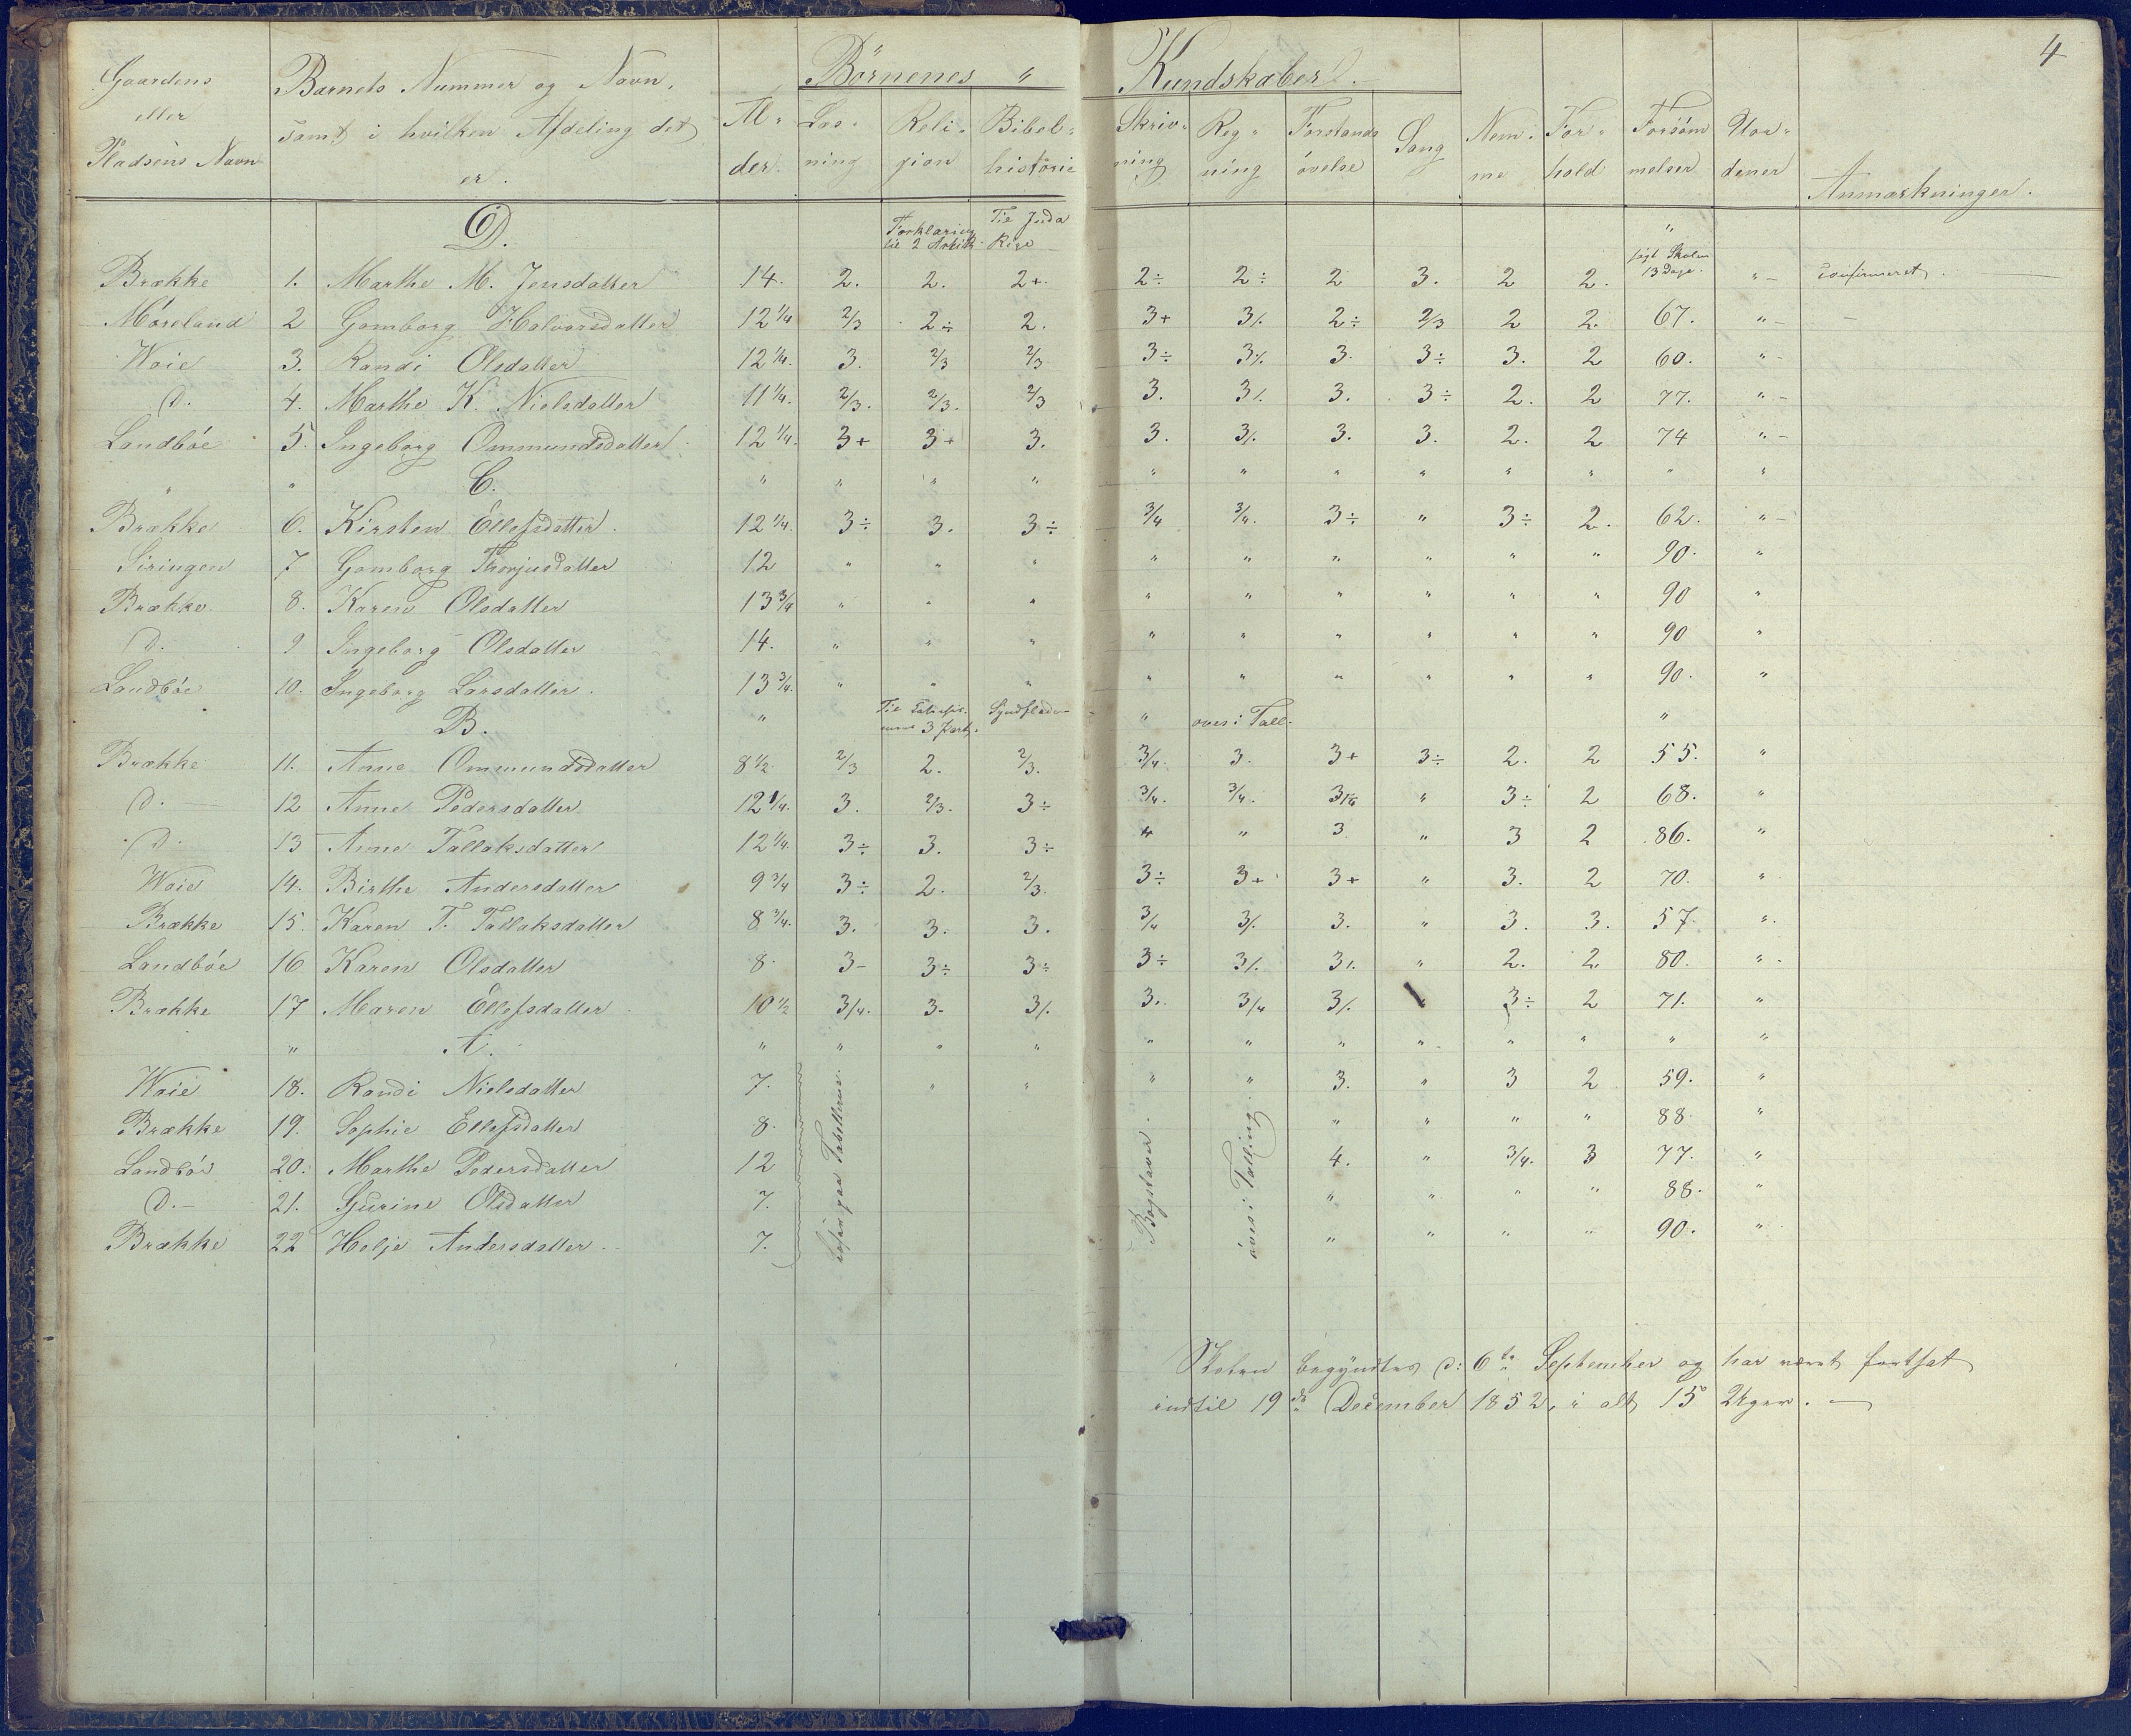 4
Gaardens eller Pladsens Navn | Barnets Nummer og Navn, samt i hvilken Afdeling det er. | Al-der. | Börnenes " Kundskaber.
Læs-ning | Reli-gion | Bibel-historie | Skriv-ning | Reg-ning | Forstands övelse | Sang | Nem-me | For-hold | Forsöm melser | Uor-dener | Anmærkninger.
D. | Forklaring til 2 Artik. | Til Juda Rige | "
Brække | 1. | Marthe M. Jensdatter | 14. | 2. | 2. | 2+. | 2÷ | 2÷ | 2 | 3. | 2 | 2. | søgt Skolen 13 Dage. | " | confirmeret.
Möreland | 2 | Gomborg Halvorsdatter | 12 1/4 | 2/3 | 2÷ | 2. | 3+ | 3/. | 2÷ | 2/3 | 2 | 2. | 67. | " | –
Woie | 3. | Randi Olsdatter | 12 1/4. | 3. | 2/3 | 2/3 | 3÷ | 3/. | 3. | 3÷ | 3. | 2 | 60. | "
D. | 4. | Marthe K. Nielsdatter | 11 1/4. | 2/3. | 2/3. | 2/3 | 3. | 3/. | 3. | 3÷ | 2. | 2 | 77. | "
Landböe | 5. | Ingeborg Ommundsdatter | 12 1/4. | 3+ | 3+ | 3. | 3. | 3/. | 3. | 3. | 2. | 2 | 74 | "
" | " | C. | " | " | " | " | " | " | " | " | " | " | " | "
Brække | 6. | Kirsten Ellefsdatter. | 12 1/4. | 3÷ | 3. | 3÷ | 3/4 | 3/4. | 3÷ | " | 3÷ | 2. | 62. | "
Siringen | 7 | Gomborg Thorjusdatter | 12 | " | " | " | " | " | " | " | " | " | 90. | "
Brække | 8. | Karen Olsdatter | 13 3/4 | " | " | " | " | " | " | " | " | " | 90 | "
D. | 9 | Ingeborg Olsdatter | 14. | " | " | " | " | " | " | " | " | " | 90 | "
Landböe | 10. | Ingeborg Larsdatter. | 13 3/4. | " | " | " | " | " | " | " | " | " | 90. | "
B. | " | Til 3 Part. | Syndfloden | " | öves i Tall. | "
Brække | 11. | Anne Ommundsdatter | 8 1/2. | 2/3 | 2. | 2/3. | 3/4. | 3. | 3+ | 3÷ | 2. | 2 | 55. | "
D. | 12 | Anne Pedersdatter | 12 1/4. | 3. | 2/3. | 3÷ | 3/4. | 3/4. | 3/4 | " | 3÷ | 2 | 68. | "
D. | 13 | Anne Tallaksdatter | 12 1/4. | 3÷ | 3. | 3÷ | 4 | " | 3 | " | 3 | 2 | 86. | "
Woie | 14. | Birthe Andersdatter | 9 3/4 | 3÷ | 2. | 2/3. | 3÷ | 3+ | 3+ | " | 3. | 2 | 70. | "
Brække | 15. | Karen T. Tallaksdatter | 8 3/4. | 3. | 3. | 3. | 3/4 | 3/. | 3. | " | 3. | 3. | 57. | "
Landböe | 16 | Karen Olsdatter | 8. | 3- | 3÷ | 3÷ | 3÷ | 3/. | 3/. | " | 2. | 2. | 80. | "
Brække | 17 | Maren Ellefsdatter | 10 1/2 | 3/4. | 3- | 3/. | 3. | 3/4 | 3/. | " | 3÷ | 2 | 71. | "
" | A. | " | " | " | " | " | " | " | " | " | " | " | "
Woie | 18. | Randi Nielsdatter | 7. | " | " | " | " | 3. | " | 3 | 2 | 59. | "
Brække | 19. | Sophie Ellefsdatter | 8. | " | " | " | " | 88. | "
Landböe | 20. | Marthe Pedersdatter | 12 | 4. | " | 3/4. | 3 | 77. | "
D.- | 21. | Gurine Olsdatter | 7. | " | " | " | " | 88. | "
Brække | 22 | Helje Andersdatter. | 7. | " | " | " | " | 90. | "
læser paa Tabellerne.
Bogstaver.
öves i Tælling.
Skolen begyndtes d: 6te September og har været fortsat
indtil 19de December 1852, i alt 15 Uger. —